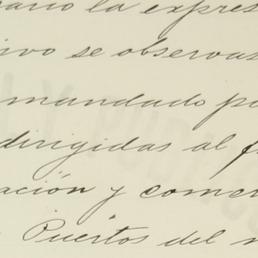 la expres
se observas
mandado po
dirigidas al
ación y comer
Puertos del